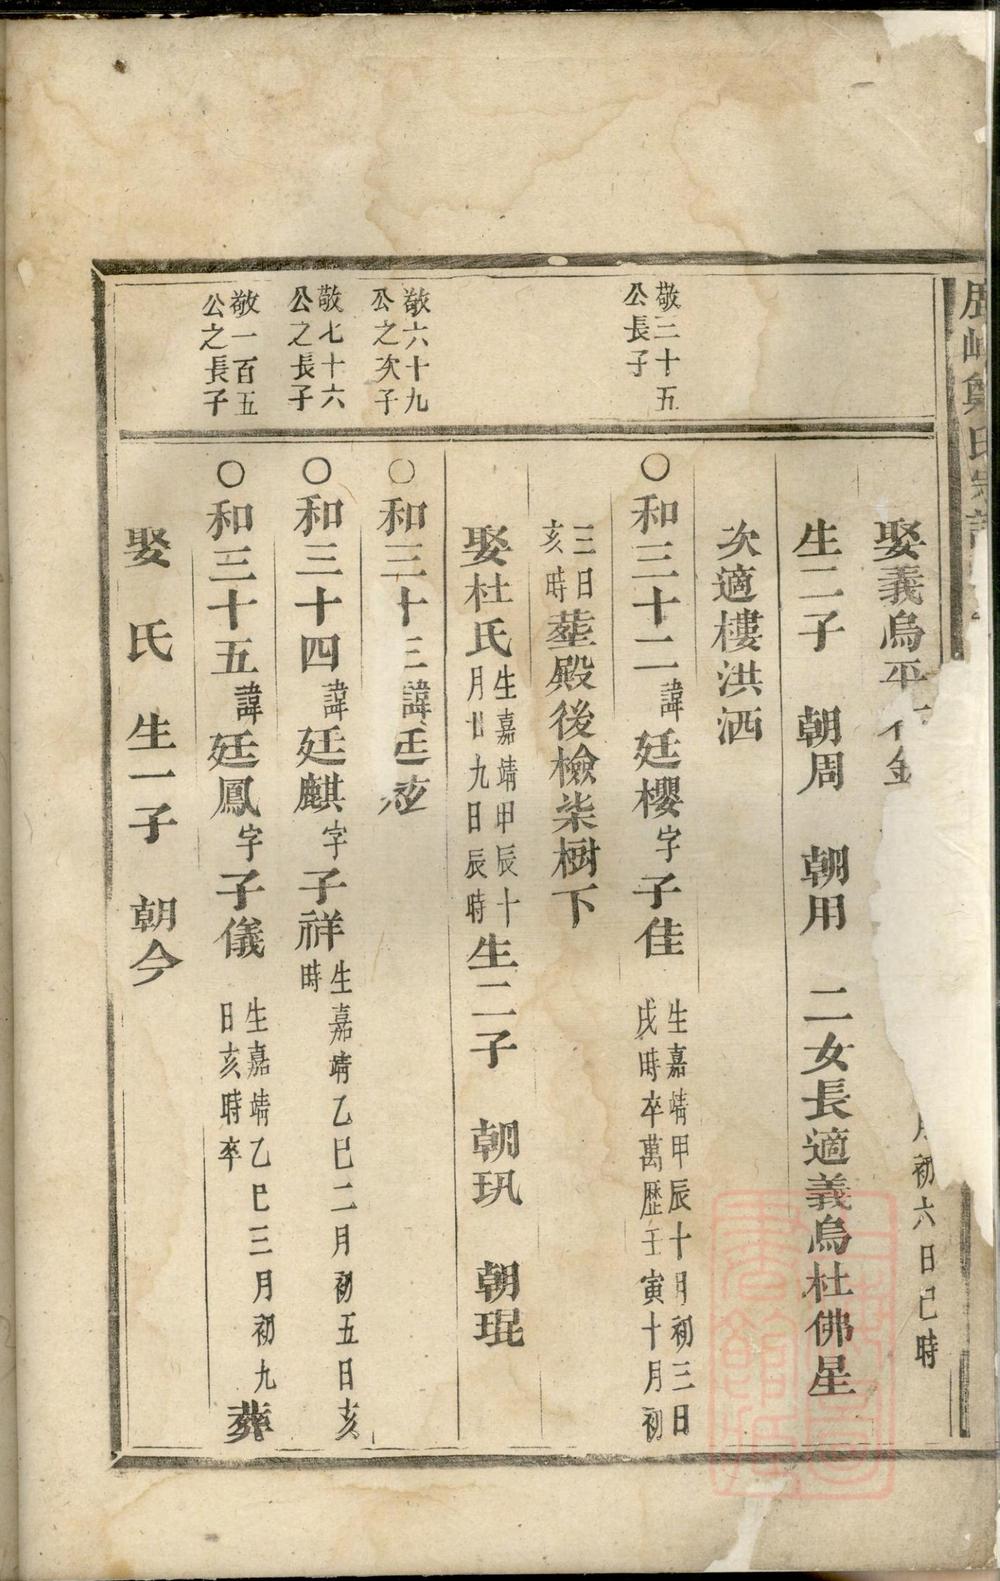 鄭氏宗譜
娶義烏平
月初六日巳時
生二子 朝周 朝用 二女長適義烏杜佛星
次適樓洪洒
敬三十五
公長子
○和三十二諱廷櫻字子佳
生嘉靖甲辰十月初三日
戌時卒萬歷壬寅十月初
三日
亥時
塟殿後檢柒樹下
娶杜氏
生嘉靖甲辰十
月廿九日辰時
生二子 朝玑 朝琨
敬六十九
公之次子
○和三十三諱廷
敬七十六
公之長子
○和三十四諱廷麒字子祥
生嘉靖乙巳二月初五日亥
時
敬一百五
公之長子
○和三十五諱廷鳳字子儀
生嘉靖乙巳三月初九
日亥時卒
葬
娶 氏 生一子 朝今